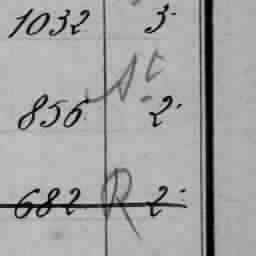 1032 3.
856 2.
682 R 2.